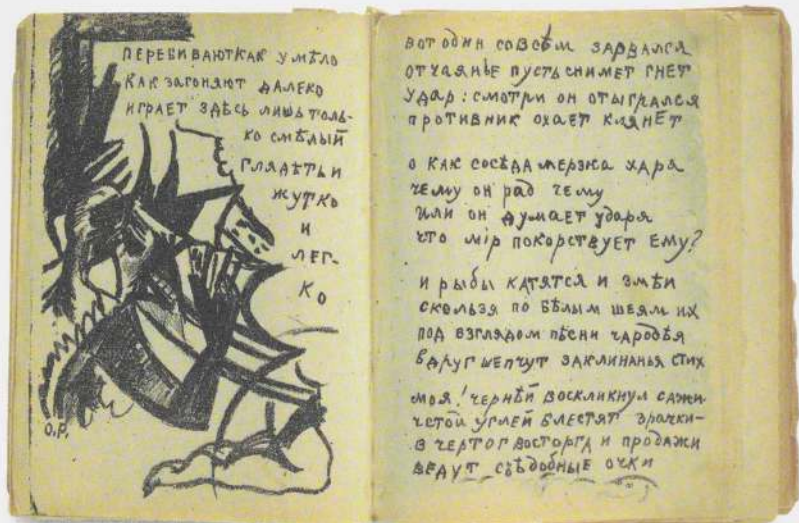 ПЕРЕБИВАЮТ КАК УМѢЛО
КАК ЗАГОНЯЮТ ДАЛЕКО
ИГРАЕТ ЗДѢСЬ ЛИШЬ ТОЛЬ-
КО СМѢЛЫЙ
ГЛЯДѢТЬ И
ЖУТКО
И
ЛЕГ-
КО
О.Р.
вот один совсѣм зарвался
отчаянье пусть снимет гнет
удар: смотри он отыгрался
противник охает клянет
о как сосѣда мерзка харя
чему он рад чему
или он думает ударя
что мiр покорствует ему?
и рыбы катятся и змѣи
скользя по бѣлым шеям их
под взглядом пѣсни чародѣя
вдруг шепчут заклинанья стих
моя! чернѣй воскликнул сажи
четой углей блестят зрачки-
в чертог восторга и продажи
ведут съѣдобные очки